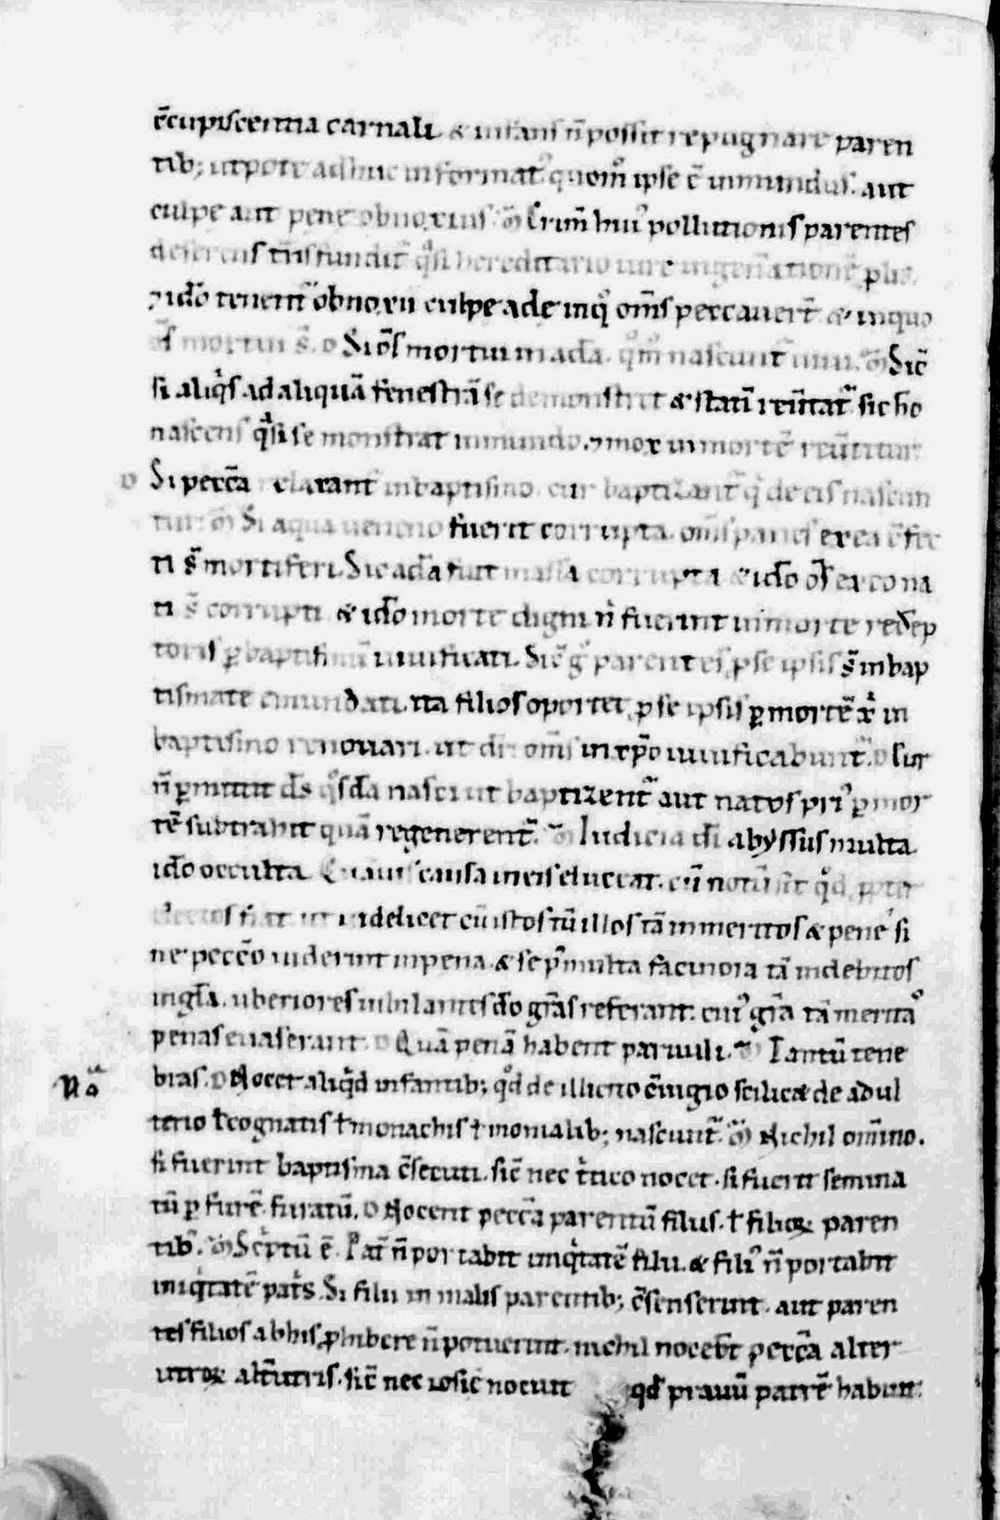 c̄cupiscentia carnali. & infans n̄ possit repugnare paren
tib; utpote adhuc informat᷒ quom̊ ipse ē inmundus. aut
culpe aut pene obnoxius. Crim̄ hui᷒ pollutionis parentes
deserens
⁊ ido̅ tenent̄ obnoxii culpe ade inq̊ om̄s peccauer̄t & in quo
mortui s̄. D Si oēs mortui in ada. qm̊ nascunt̄ uiui. m̄ Sic̄
si aliq̇s ad aliquā fenestrā se demonstret & statī reūtat̄ sic ho
nascens q̇si se monstrat in mundo. ⁊ mox in mortē reūtitur
D Si peccā relaxant̄ in baptismo. cur baptizant̄ q̇ de eis nascun
tur. m̄ Si aqua ueneno fuerit corrupta. om̄s panes ex ea c̄fec
ti s̄ mortiferi. Sic ada fuit massa corrupta & ido̅ oēs ex eo na
ti s̄ corrupti & ido̅ morte digni n̊ fuerint in morte redēp
toris ꝑ baptismū uiuificati. Sic̄ g̊ parentes ꝓ se ipsis s̄ in bap
tismate emundati. ita filios oportet ꝓ se ipsis ꝑ mortē xp̊i in
baptismo renouari. ut dr̄ om̄s in xp̄o uiuificabunt̄. D Cur
n̄ ꝑmittit ds̄ q̊sda nasci ut baptizent̄ aut natos pri᷒ ꝑ mor
tē subtrahit quā regenerent̄. m̄ Iudicia di̅ abyssus multa
ido̅ occulta. Quāuis causa in eis eluceat. cū notū sit q̊d
electos fiat ut uidelicet cū istos tū illos tā inmeritos & pene si
ne pecc̄o uiderint in pena. & se p᷒ multa facinora tā indebitos
in gl̄a. uberiores iubilantes do̅ gr̄as referant. cui᷒ gr̄a tā merita᷒
penas euaserant. D Quā penā habent paruuli. m̄ Tantū tene
bras. D Nocet aliq̇d infantib; q̊d de illicito c̄iugio scilic& de adul
terio ł cognatis ł monachis ł monialib; nascunt̄. m̄ Nichil om̄ino.
si fuerint baptisma c̄secuti. sic̄ nec t̊tico nocet. si fuerit semina
tū ꝑ furē furatū. D Nocent peccā parentū filiis. ł filioꝝ paren
tib᷒. m̄ Sc̊ptū ē. Pat̄ n̄ portabit iniq̇tatē filii. & fili᷒ n̄ portabit
iniq̇tatē pat̊s. Si filii in malis parentib; c̄senserint. aut paren
tes filios ab his ꝓhibere n̄ potuerint. nichil noceb̄t peccā alter
utroꝝ alt̄utris. sic̄ nec iosie nocuit qd̄ prauū patrē habuit.
Nōa